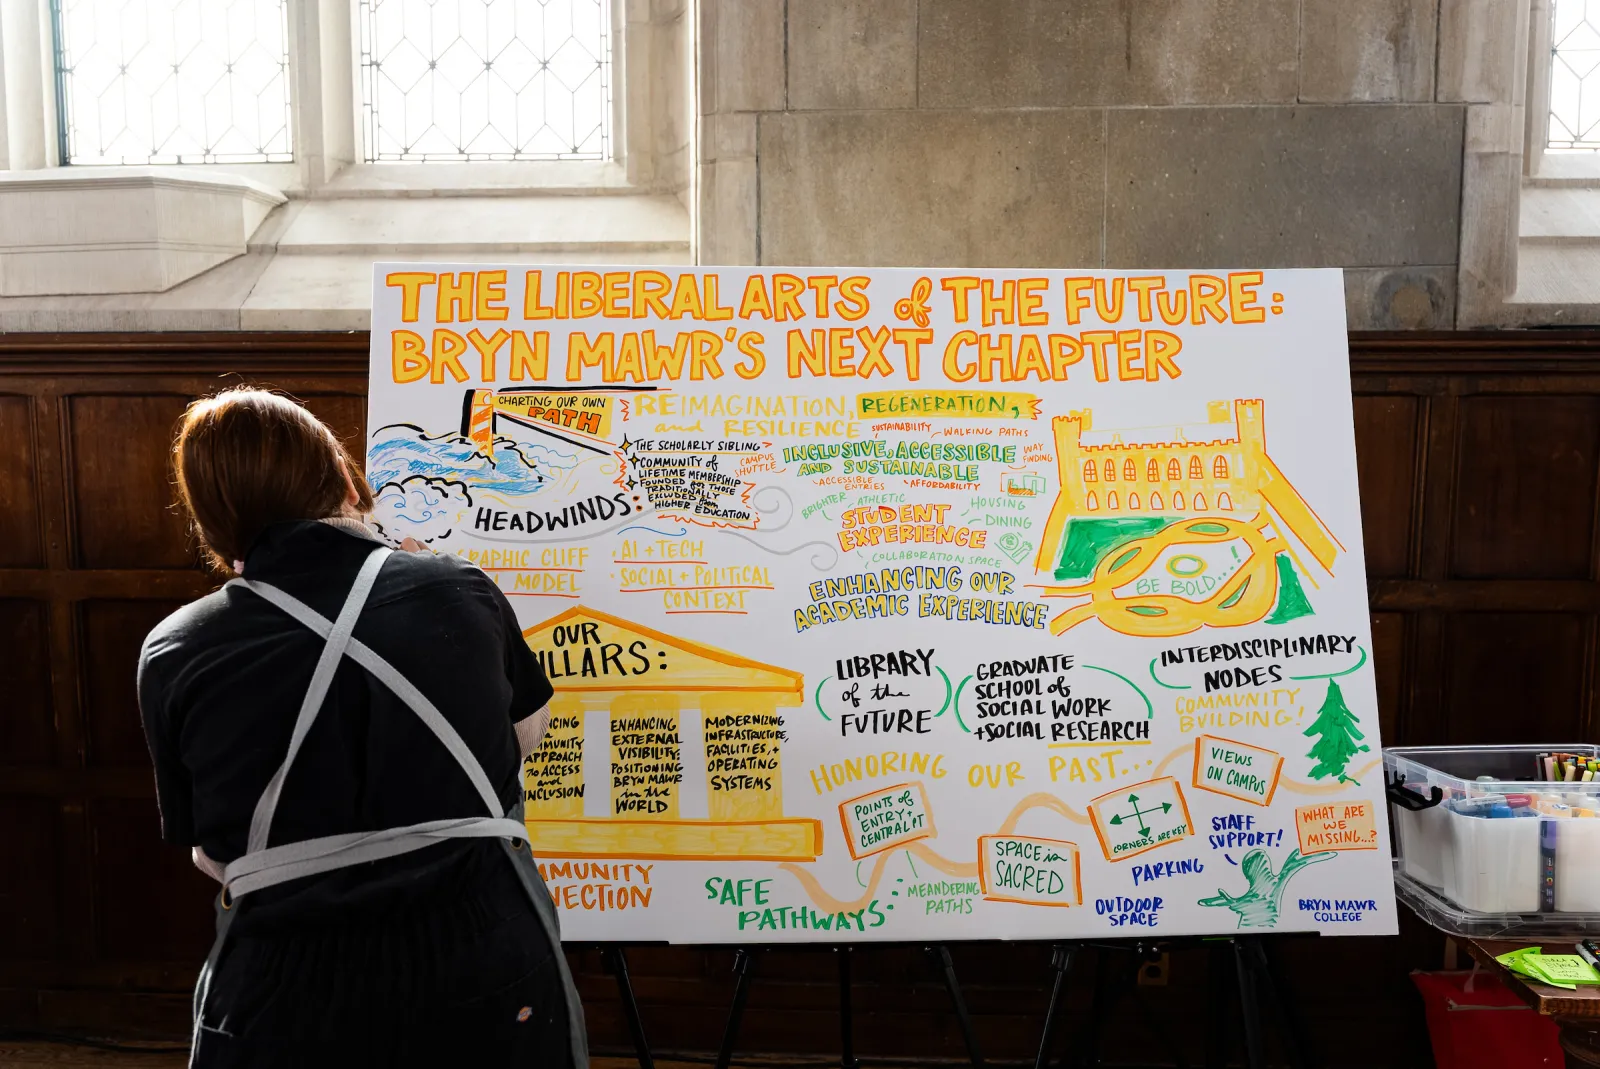 THE LIBERAL ARTS of THE FUTURE:
BRYN MAWR'S NEXT CHAPTER
CHARTING OUR OWN
PATH
REIMAGINATION, REGENERATION,
and RESILIENCE
THE SCHOLARLY SIBLING
COMMUNITY of
LIFETIME MEMBERSHIP
FOUNDED for THOSE
TRADITIONALLY
EXCLUDED from
HIGHER EDUCATION
CAMPUS
SHUTTLE
SUSTAINABILITY
WALKING PATHS
INCLUSIVE, ACCESSIBLE
AND SUSTAINABLE
WAY
FINDING
ACCESSIBLE
ENTRIES
AFFORDABILITY
BRIGHTER
ATHLETIC
HOUSING
STUDENT
EXPERIENCE
DINING
COLLABORATION SPACE
ENHANCING OUR
ACADEMIC EXPERIENCE
BE BOLD....!
HEADWINDS:
GRAPHIC CLIFF
MODEL
· AI + TECH
· SOCIAL + POLITICAL
CONTEXT
OUR
ILLARS:
NCING
MUNITY
APPROACH
TO ACCESS
and
INCLUSION
ENHANCING
EXTERNAL
VISIBILITY:
POSITIONING
BRYN MAWR
in the
WORLD
MODERNIZING
INFRASTRUCTURE,
FACILITIES, +
OPERATING
SYSTEMS
LIBRARY
of the
FUTURE
GRADUATE
SCHOOL of
SOCIAL WORK
+ SOCIAL RESEARCH
INTERDISCIPLINARY
NODES
COMMUNITY
BUILDING!
HONORING OUR PAST...
POINTS of
ENTRY +
CENTRAL PT
SPACE is
SACRED
CORNERS ARE KEY
VIEWS
ON CAMPUS
WHAT ARE
WE
MISSING...?
STAFF
SUPPORT!
PARKING
OUTDOOR
SPACE
MMUNITY
NECTION
SAFE
PATHWAYS
MEANDERING
PATHS
BRYN MAWR
COLLEGE